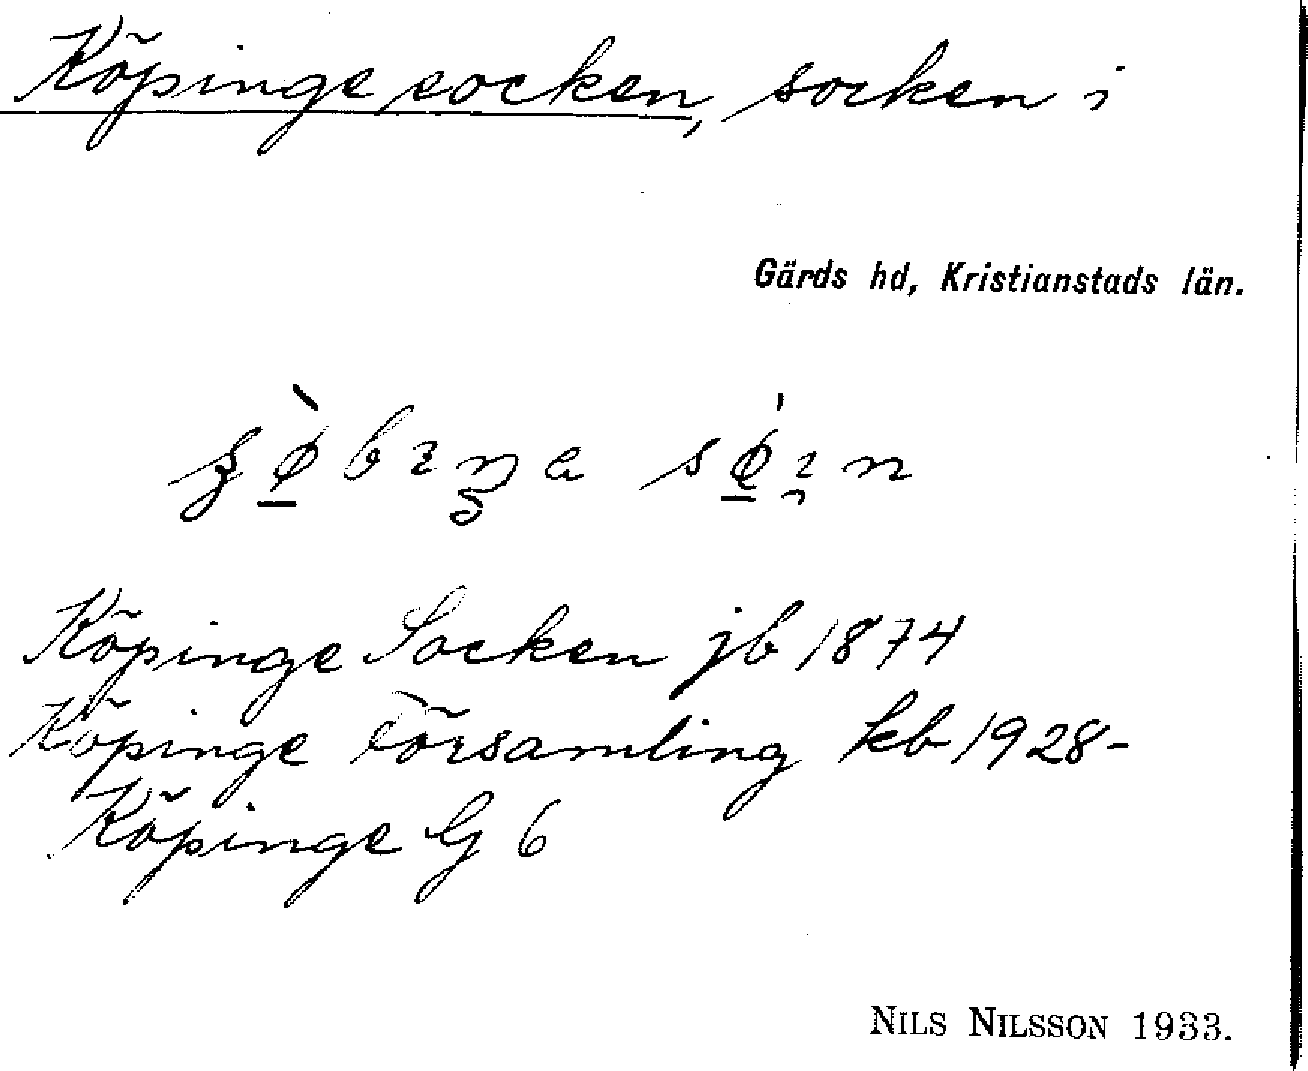 Köpinge socken, socken i
Gärds hd, Kristianstads län.
Köpinge Socken jb 1874
Köpinge Församling kb 1928-
Köpinge G 6
NILS NILSSON 1933.